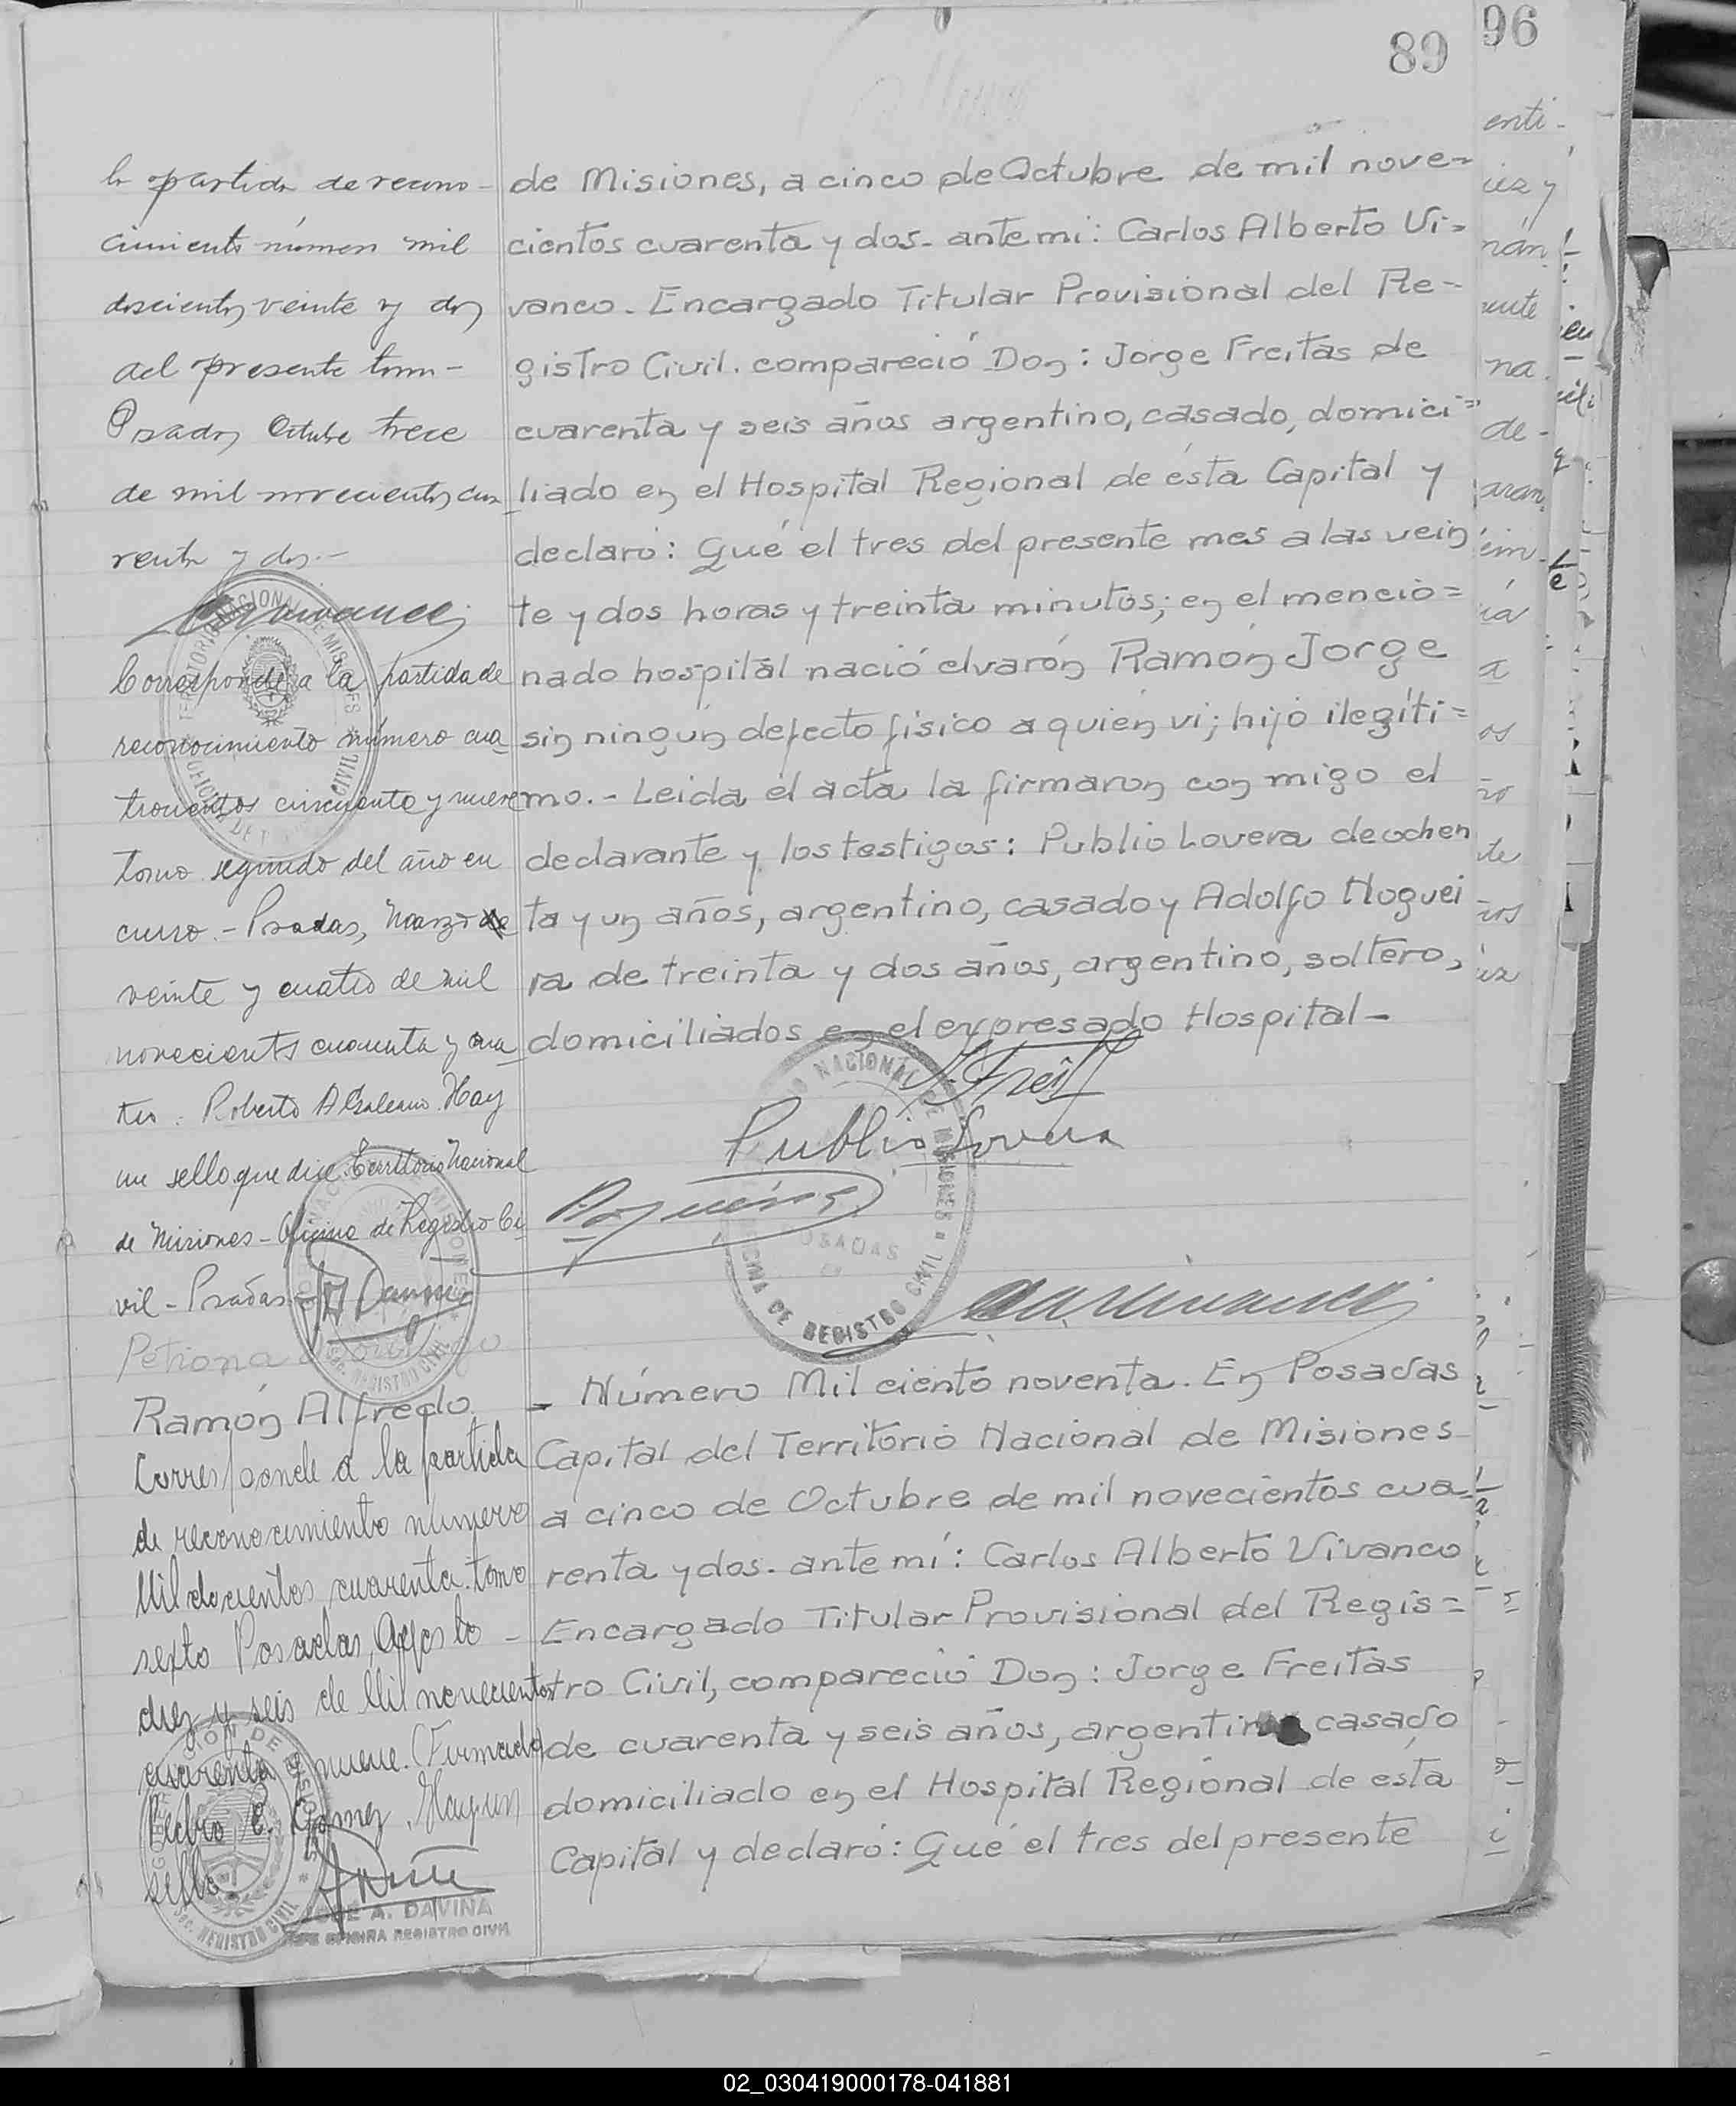 89
96
la partida de recono-
cimiento número mil
doscientos veinte y dos
del presente tomo-
Posadas Octubre trece
de mil novecientos cua-
renta y dos.-
Corresponde a la partida de
reconocimiento número cua-
trocientos cincuenta y nueve
tomo segundo del año en
curso.- Posadas, Marzo de
veinte y cuatro de mil
novecientos cuarenta y cua-
tro. Roberto A Galeano. Hay
un sello que dice Territorio Nacional
de Misiones - Oficina de Registro Ci-
vil - Posadas.-
Petrona
Ramón Alfredo
Corresponde a la partida
de reconocimiento número
Mil docientos cuarenta. tomo
sexto Posadas, Agosto -
diez y seis de Mil novecientos
cuarenta y nueve. (Firmado)
Pedro E. Gomez. Hay un
sello.
JOSE A. DAVIÑA
JEFE OFICINA REGISTRO CIVIL
de Misiones, a cinco de Octubre de mil nove=
cientos cuarenta y dos- ante mi: Carlos Alberto Vi=
vanco. Encargado Titular Provisional del Re-
gistro Civil. compareció Don: Jorge Freitas de
cuarenta y seis años argentino, casado, domici=
liado en el Hospital Regional de ésta Capital y
declaró: Qué el tres del presente mes a las vein
te y dos horas y treinta minutos; en el mencio=
nado hospital nació el varón Ramón Jorge
sin ningún defecto físico a quien vi; hijo ilegíti=
mo.- Leida el acta la firmaron con migo el
declarante y los testigos: Publio Lovera de ochen
ta y un años, argentino, casado y Adolfo Noguei
ra de treinta y dos años, argentino, soltero,
domiciliados en el expresado Hospital-
J. Freitas
Publio Lovera
Nogueira
TERRITORIO NACIONAL DE MISIONES
POSADAS
OFICINA DE REGISTRO CIVIL
- Número Mil ciento noventa. En Posadas
Capital del Territorio Nacional de Misiones
a cinco de Octubre de mil novecientos cua-
renta y dos- ante mí: Carlos Alberto Vivanco
Encargado Titular Provisional del Regis=
tro Civil, compareció Don: Jorge Freitas
de cuarenta y seis años, argentino casado
domiciliado en el Hospital Regional de esta
Capital y declaró: Qué el tres del presente
02_030419000178-041881